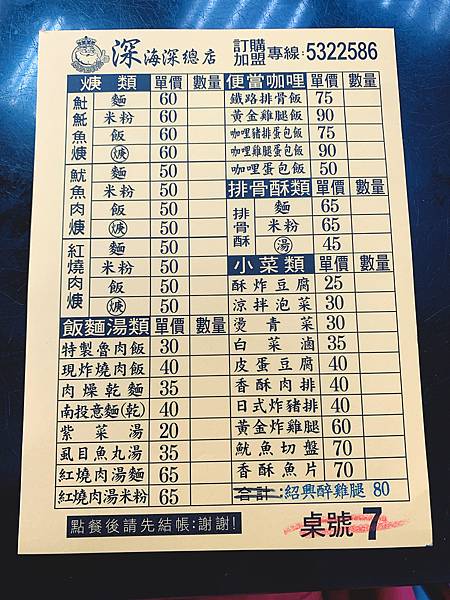 深海深總店 訂購加盟專線:5322586
焿類 單價 數量
魠魠魚焿 麵 60
米粉 60
飯 60
焿 60
魷魚肉焿 麵 50
米粉 50
飯 50
焿 50
紅燒肉焿 麵 50
米粉 50
飯 50
焿 50
飯麵湯類 單價 數量
特製魯肉飯 30
現炸燒肉飯 40
肉燥乾麵 35
南投意麵(乾) 40
紫菜湯 20
虱目魚丸湯 35
紅燒肉湯麵 65
紅燒肉湯米粉 65
點餐後請先結帳:謝謝!
便當咖哩 單價 數量
鐵路排骨飯 75
黃金雞腿飯 90
咖哩豬排蛋包飯 75
咖哩雞腿蛋包飯 90
咖哩蛋包飯 50
排骨酥類 單價 數量
排骨酥 麵 65
米粉 65
湯 45
小菜類 單價 數量
酥炸豆腐 25
涼拌泡菜 30
燙青菜 30
白菜滷 35
皮蛋豆腐 40
香酥肉排 40
日式炸豬排 40
黃金炸雞腿 60
魷魚切盤 70
香酥魚片 70
合計: 紹興醉雞腿 80
桌號 7